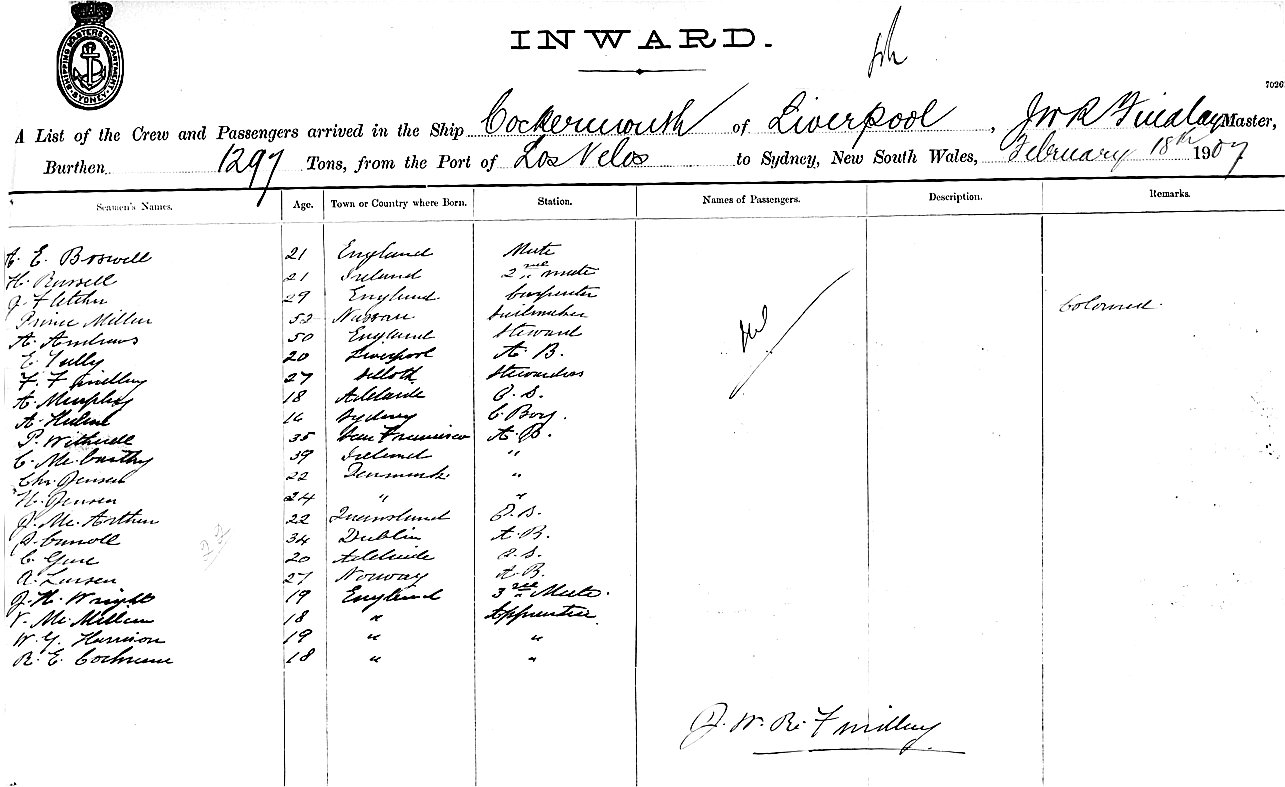 SHIPPING MASTERS DEPARTMENT SYDNEY
INWARD.
7026
A List of the Crew and Passengers arrived in the Ship Cockermouth of Liverpool, JWR Findlay Master,
Burthen 1297 Tons, from the Port of Los Velos to Sydney, New South Wales, February 18th 1907
Seamen's Names. Age. Town or Country where Born. Station. Names of Passengers. Description. Remarks.
A. E. Boswell 21 England Mate
H. Russell 21 Ireland 2nd mate
J. Fletcher 29 England Carpenter
Prince Miller 52 Nassau Sailmaker Coloured
A. Andrews 50 England Steward
E. Tully 20 Liverpool A. B.
F. Findlay 27 Silloth Stewardess
A. Murphy 18 Adelaide O. S.
A. 16 Sydney C. Boy.
P. Withnell 35 San Francisco A. B.
C. McCarthy 39 Ireland "
Chr. Jensen 22 Denmark "
H. Jensen 24 " "
J. McArthur 22 Queensland
Carroll 34 Dublin A. B.
C. 20 Adelaide O. S.
A. Larsen 27 Norway A. B.
J. H. Wright 19 England 3rd Mate.
V. McMillan 18 " Apprentice
W. G. Harrison 19 " "
R. E. Cochrane 18 " "
nil
J. W. R. Findlay